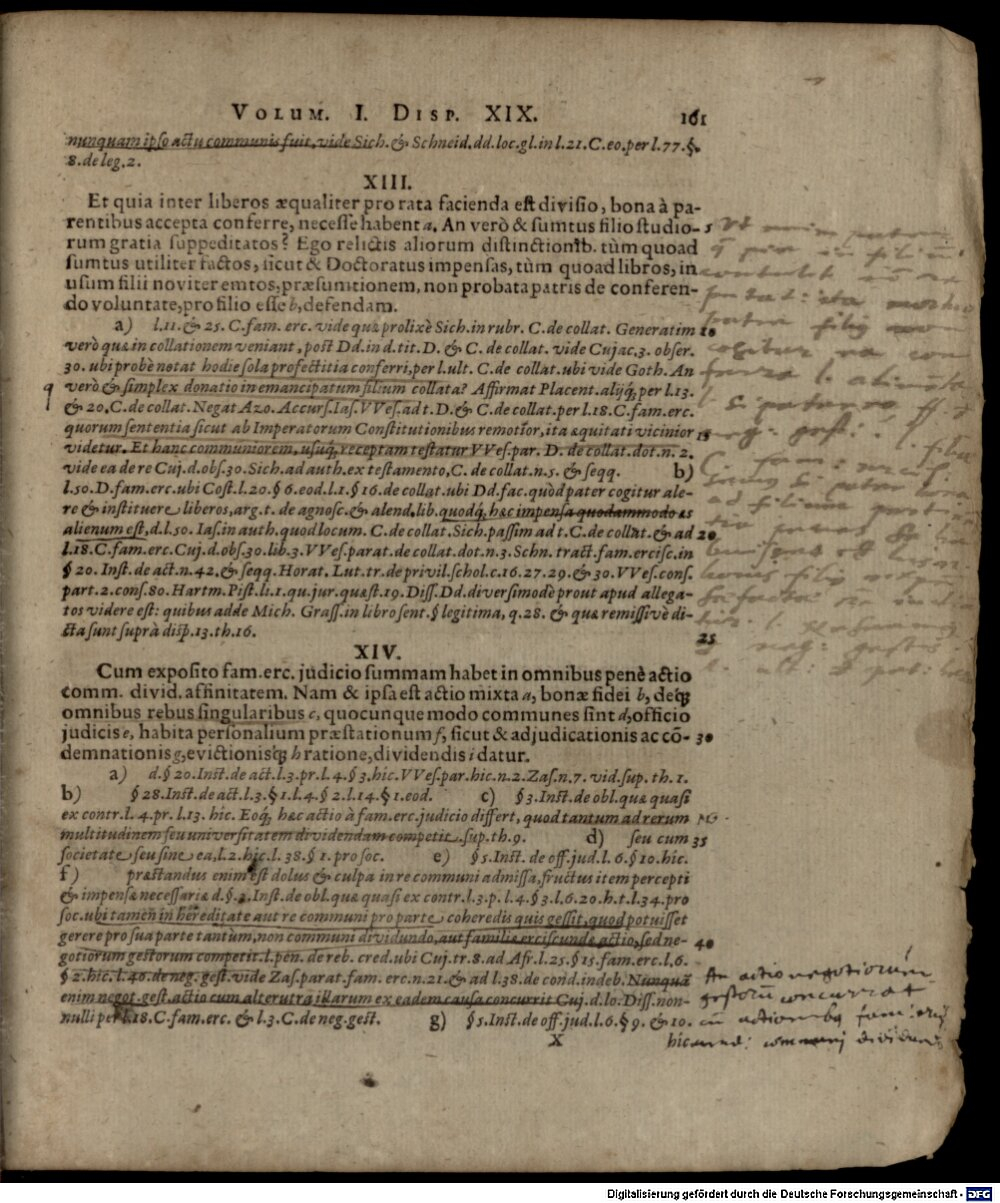 VOLUM. I. DISP. XIX. 161
nunquam ipso actu communis fuit, vide Sich. & Schneid. dd. loc. gl. in l. 21. C. eo. per l. 77. §.
8. de leg. 2.
XIII.
Et quia inter liberos æqualiter pro rata facienda est divisio, bona à pa-
rentibus accepta conferre, necesse habent a. An verò & sumtus filio studio- 5
rum gratia suppeditatos? Ego relictis aliorum distinctionib. tùm quoad
sumtus utiliter factos, sicut & Doctoratus impensas, tùm quoad libros, in
usum filii noviter emtos, præsumtionem, non probata patris de conferen-
do voluntate, pro filio esse b, defendam.
a) l. 11. & 25. C. fam. erc. vide quæ prolixè Sich. in rubr. C. de collat. Generatim 10
verò quæ in collationem veniant, post Dd. in d. tit. D. & C. de collat. vide Cujac. 3. obser.
30. ubi probè notat hodie sola profectitia conferri, per l. ult. C. de collat. ubi vide Goth. An
verò & simplex donatio in emancipatum filium collata? Affirmat Placent. alijq́, per l. 13.
& 20. C. de collat. Negat Azo. Accurs. Ias. VVes. ad t. D. & C. de collat. per l. 18. C. fam. erc.
quorum sententia sicut ab Imperatorum Constitutionibus remotior, ita æquitati vicinior 15
videtur. Et hanc communiorem, usuq́, receptam testatur VVes. par. D. de collat. dot. n. 2.
vide ea de re Cuj. d. obs. 30. Sich. ad auth. ex testamento, C. de collat. n. 5. & seqq. b)
l. 50. D. fam. erc. ubi Cost. l. 20. § 6. eod. l. 1. § 16. de collat. ubi Dd. fac. quòd pater cogitur ale-
re & instituere liberos, arg. t. de agnosc. & alend. lib. quodq́, hæc impensa quodammodo æs
alienum est, d. l. 50. Ias. in auth. quod locum. C. de collat. Sich. passim ad t. C. de collat. & ad 20
l. 18. C. fam. erc. Cuj. d. obs. 30. lib. 3. VVes. parat. de collat. dot. n. 3. Schn. tract. fam. ercisc. in
§ 20. Inst. de act. n. 42. & seqq. Horat. Lut. tr. de privil. schol. c. 16. 27. 29. & 30. VVes. cons.
part. 2. cons. 80. Hartm. Pist. li. 1. qu. jur. quæst. 19. Diss. Dd. diversimodè prout apud allega-
tos videre est: quibus adde Mich. Grass. in libro sent. § legitima, q. 28. & quæ remissivè di-
cta sunt suprà disp. 13. th. 16. 25
XIV.
Cum exposito fam. erc. judicio summam habet in omnibus penè actio
comm. divid. affinitatem. Nam & ipsa est actio mixta a, bonæ fidei b, deq́
omnibus rebus singularibus c, quocunque modo communes sint d, officio
judicis e, habita personalium præstationum f, sicut & adjudicationis ac cō- 30
demnationis g, evictionisq́ h ratione, dividendis i datur.
a) d. § 20. Inst. de act. l. 3. pr. l. 4. § 3. hic. VVes. par. hic. n. 2. Zas. n. 7. vid. sup. th. 1.
b) § 28. Inst. de act. l. 3. § 1. l. 4. § 2. l. 14. § 1. eod. c) § 3. Inst. de obl. quæ quasi
ex contr. l. 4. pr. l. 13. hic. Eoq́, hæc actio à fam. erc. judicio differt, quod tantum ad rerum
multitudinem seu universitatem dividendam competit. sup. th. 9. d) seu cum 35
societate seu sine ea, l. 2. hic. l. 38. § 1. pro soc. e) § 5. Inst. de off. jud. l. 6. § 10. hic.
f) præstandus enim est dolus & culpa in re communi admissa, fructus item percepti
& impensæ necessariæ d. § 3. Inst. de obl. quæ quasi ex contr. l. 3. p. l. 4. § 3. l. 6. 20. h. t. l. 34. pro
soc. ubi tamen in hereditate aut re communi pro parte coheredis quis gessit, quod potuisset
gerere pro sua parte tantùm, non communi dividundo, aut familiæ erciscundæ actio, sed ne- 40
gotiorum gestorum competit. l. pen. de reb. cred. ubi Cuj. tr. 8. ad Afr. l. 25. § 15. fam. erc. l. 6.
§ 2. hic. l. 40. de neg. gest. vide Zas. parat. fam. erc. n. 21. & ad l. 38. de cond. indeb. Nunquā
enim negot. gest. actio cum alterutra illarum ex eadem causa concurrit Cuj. d. lo. Diss. non-
nulli per l. 18. C. fam. erc. & l. 3. C. de neg. gest. g) § 5. Inst. de off. jud. l. 6. § 9. & 10.
X hic
An actio negotiorum
gestorū concurrat
cū actionibq fam: erc:
communi dividendo
Digitalisierung gefördert durch die Deutsche Forschungsgemeinschaft - DFG